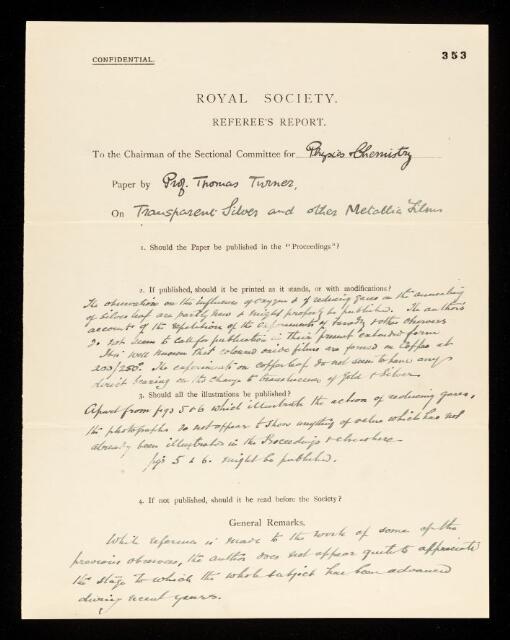 CONFIDENTIAL.
353
ROYAL SOCIETY.
REFEREE'S REPORT.
To the Chairman of the Sectional Committee for Physics & Chemistry
Paper by Prof. Thomas Turner,
On Transparent Silver and other Metallic Films
1. Should the Paper be published in the "Proceedings"?
2. If published, should it be printed as it stands, or with modifications?
The observations on the influence of oxygen & of reducing gases on the annealing
of silver leaf are partly new & might properly be published. The author's
account of the repetition of the experiments of Faraday & other observers
do not seem to call for publication in their present extended form
It is well known that coloured oxide films are formed on copper at
200/250°. The experiments on copper leaf do not seem to have any
direct bearing on the change to translucence of Gold & Silver.
3. Should all the illustrations be published?
Apart from figs 5 & 6 which illustrate the action of reducing gases,
the photographs do not appear to show anything of value which has not
already been illustrated in the Proceedings & elsewhere
figs 5 & 6. might be published.
4. If not published, should it be read before the Society?
General Remarks.
While reference is made to the work of some of the
previous observers, the author does not appear quite to appreciate
the stage to which the whole subject has been advanced
during recent years.